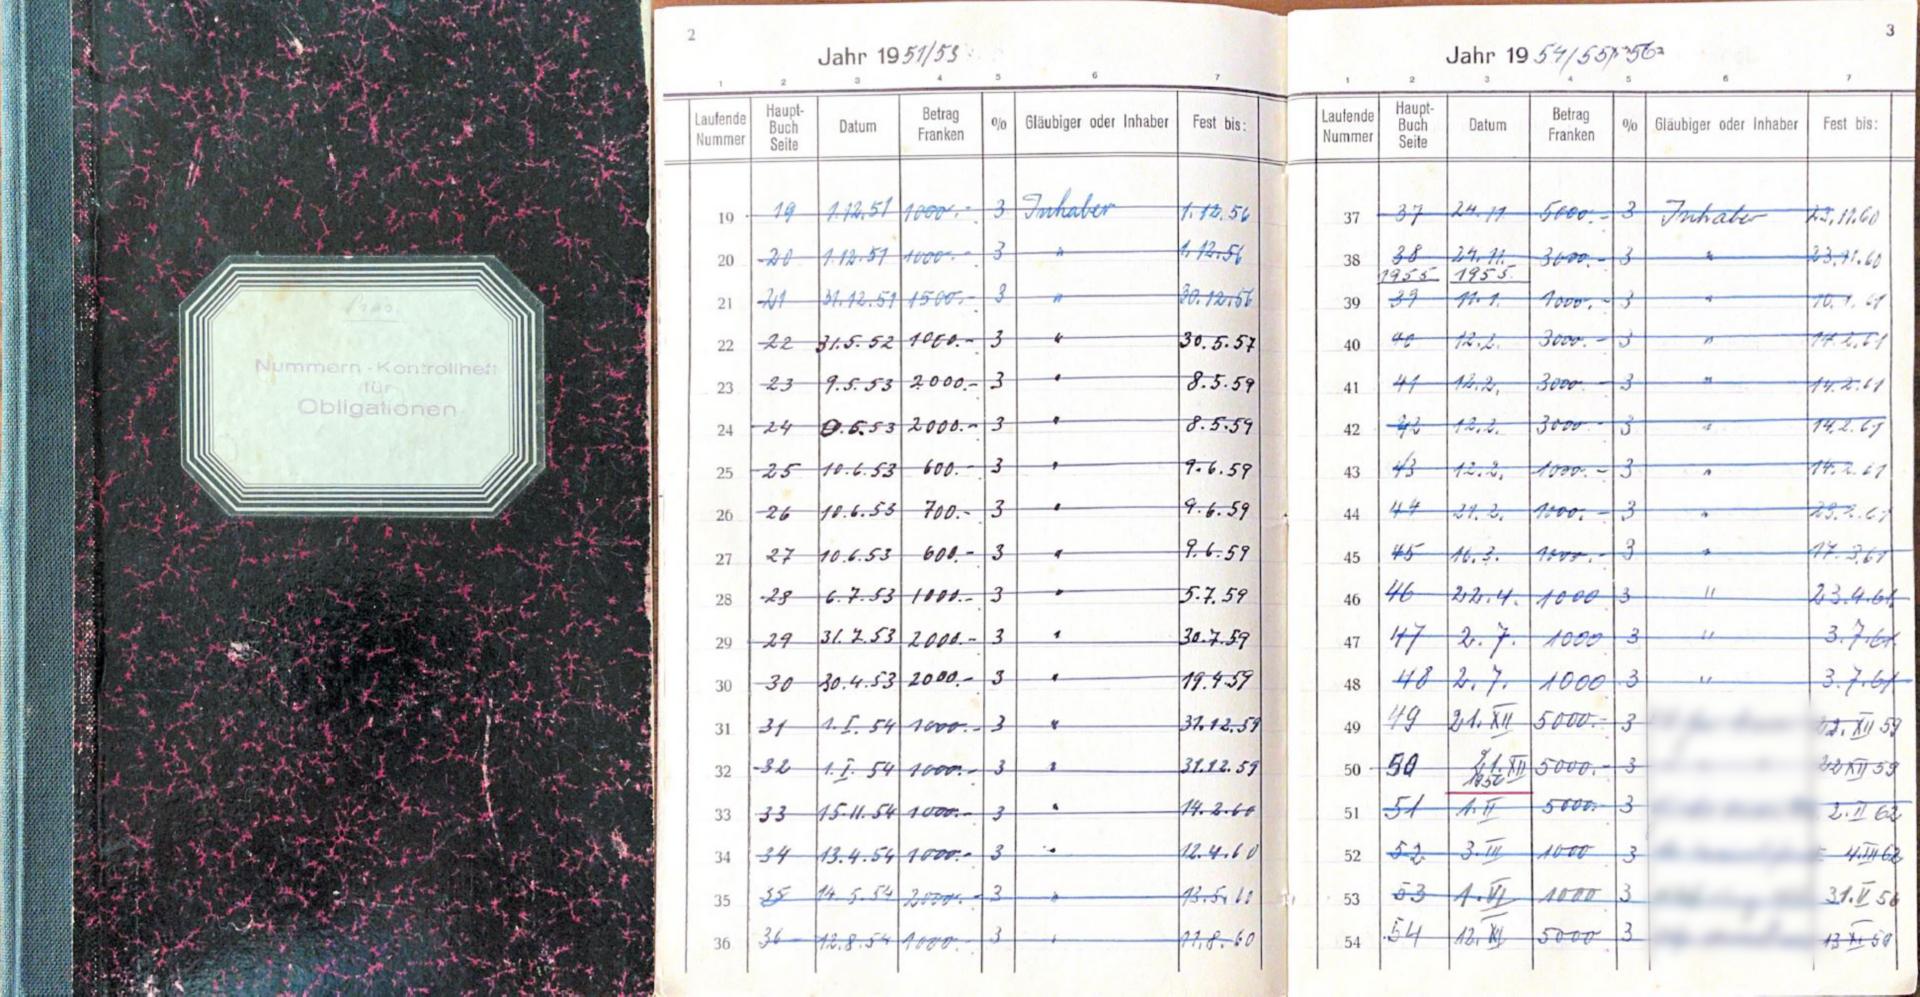 Nummern-Kontrollheft
für
Obligationen
2
Jahr 1951/53
1 2 3 4 5 6 7
Laufende Nummer Haupt-Buch Seite Datum Betrag Franken % Gläubiger oder Inhaber Fest bis:
19 19 1.12.51 1000.- 3 Inhaber 1.12.56
20 20 1.12.51 1000.- 3 " 1.12.56
21 21 31.12.51 1500.- 3 " 30.12.56
22 22 31.5.52 1000.- 3 " 30.5.57
23 23 9.5.53 2000.- 3 " 8.5.59
24 24 2000.- 3 " 8.5.59
25 25 10.6.53 600.- 3 " 9.6.59
26 26 10.6.53 700.- 3 " 9.6.59
27 27 10.6.53 600.- 3 " 9.6.59
28 28 6.7.53 1000.- 3 " 5.7.59
29 29 31.7.53 2000.- 3 " 30.7.59
30 30 2000.- 3 " 19.4.59
31 31 1.I.54 1000.- 3 " 31.12.59
32 32 1.I.54 1000.- 3 " 31.12.59
33 33 15.II.54 1000.- 3 " 14.2.60
34 34 13.4.54 1000.- 3 " 12.4.60
35 35 14.5.54 2000.- 3 " 13.5.60
36 36 12.8.54 1000.- 3 " 11.8.60
3
Jahr 1954/55/56
1 2 3 4 5 6 7
Laufende Nummer Haupt-Buch Seite Datum Betrag Franken % Gläubiger oder Inhaber Fest bis:
37 37 24.11 5000.- 3 Inhaber 23.11.60
38 38 24.11. 3000.- 3 " 23.11.60
1955 1955
39 39 11.1. 1000.- 3 " 10.1.61
40 40 12.2. 3000.- 3 " 14.2.61
41 41 12.2. 3000.- 3 " 14.2.61
42 42 12.2. 3000.- 3 " 14.2.61
43 43 12.2. 1000.- 3 " 14.2.61
44 44 1000.- 3 "
45 45 16.3. 1000.- 3 " 17.3.61
46 46 22.4. 1000 3 " 23.4.61
47 47 2.7. 1000 3 " 3.7.61
48 48 2.7. 1000 3 " 3.7.61
49 49 21.XII 5000.- 3 22.XII 59
50 50 21.XII 5000.- 3 22 XII 59
1956
51 51 1.II 5000.- 3 2.II 62
52 52 3.III 1000 3 4.III 62
53 53 1.VI 1000 3
54 54 12.XI 5000 3